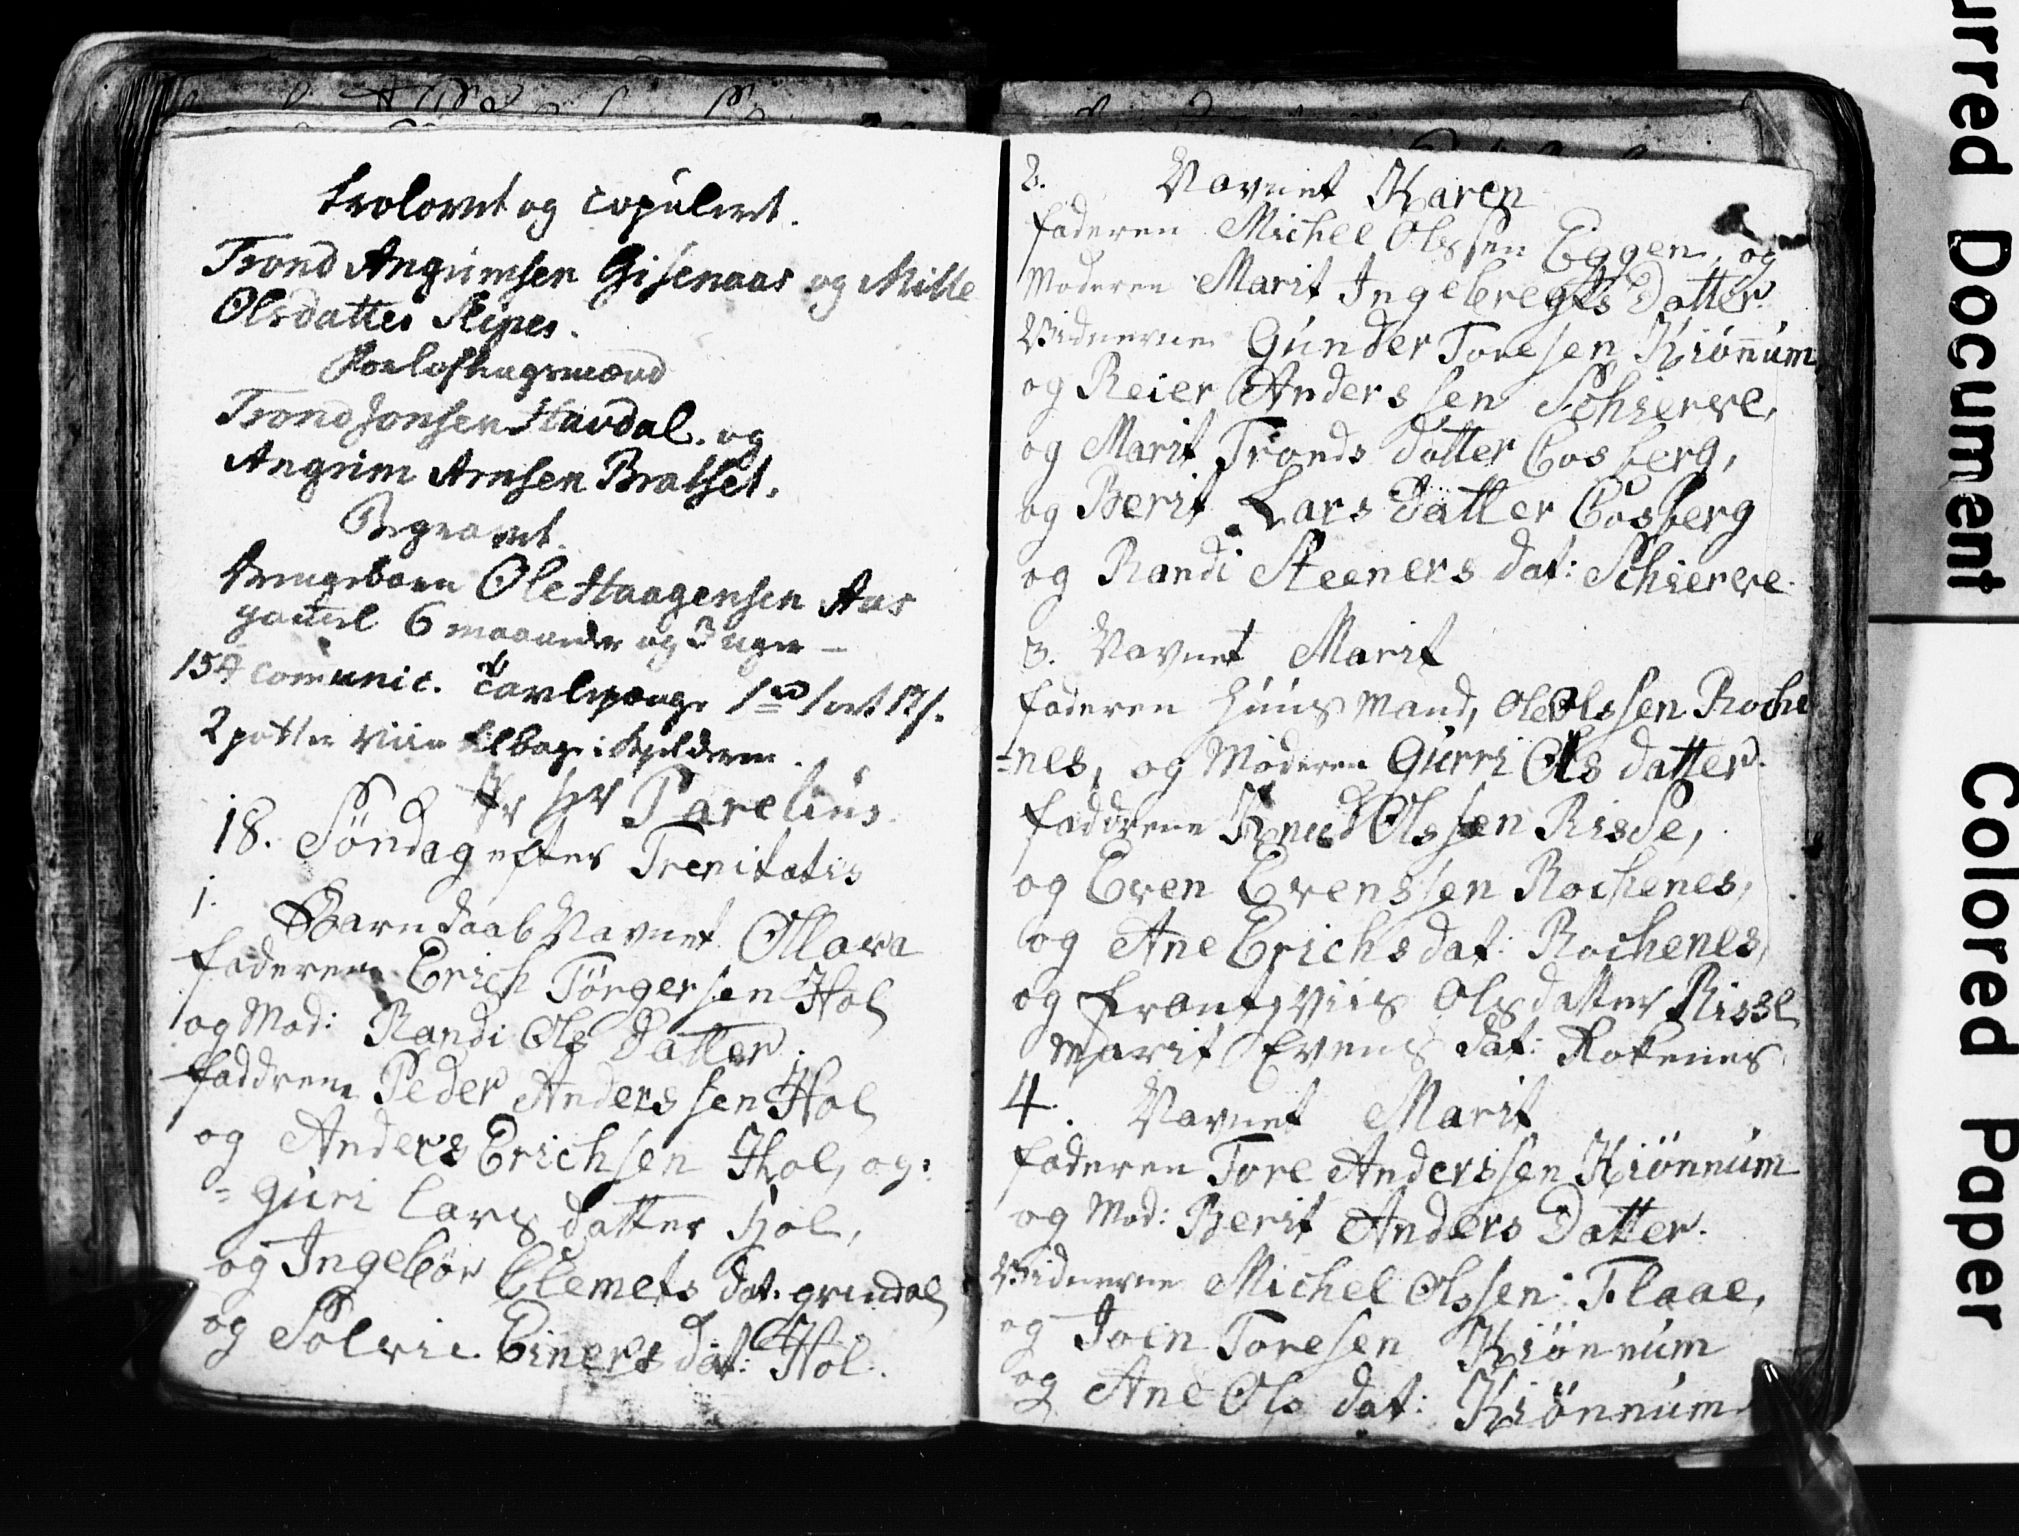 trolovet og copuleret.
Trond Angrimsen Gisenaas og Mille
Olsdatter Slipes.
Forlofningsmænd
Trond Jonsen Havdal. og
Angrim Arnsen Bratset.
Begravet.
Drengebarn Ole Haagensen Aas
gamel 6 maaneder og 3 uger –
154 comunic. tavlepenge 1 ort 12 s.
2 potter Viin tilbage i
Hr Parelius
18. Søndag efter Trenitatis
1.
Barn daab Navnet Ollava
faderen Erich Törgersen Hol
og Mod: Randi Ols Datter.
faddrene Peder Anderssen Hol
og Anders Erichsen Hol, og:
= Guri Lars datter Hol,
og Ingebör Clemets dat. grindal
og Solvie Einers dat: Hol.
2. Navnet Karen
faderen Michel Olssen Eggen, og
Moderen Marit Ingebregts Datter.
Vidnerne Gunder Toresen Kiönnum
og Reier Anderssen Schierve,
og Marit Tronds datter Cosberg,
og Berit Lars Datter Cosberg
og Randi Steeners dat: Schierve.
3. Navnet Marit
faderen Huus Mand, Ole Olssen Roche
=nes, og Moderen Gurri Ols datter.
faddrene Knud Olssen Risse,
og Even Evenssen Rochenes,
og Ane Erichs dat: Rochenes,
og Frantz Viis Olsdatter Risse
Marit Evens dat: Rokenes
4. Navnet Marit
faderen Tore Anderssen Kiönnum
og Mod: Berit Anders Datter.
Vidnerne Michel Olssen Flaae,
og Joen Toresen Kiönnum
og Ane Ols dat: Kiönnum
urred Document
Colored Paper